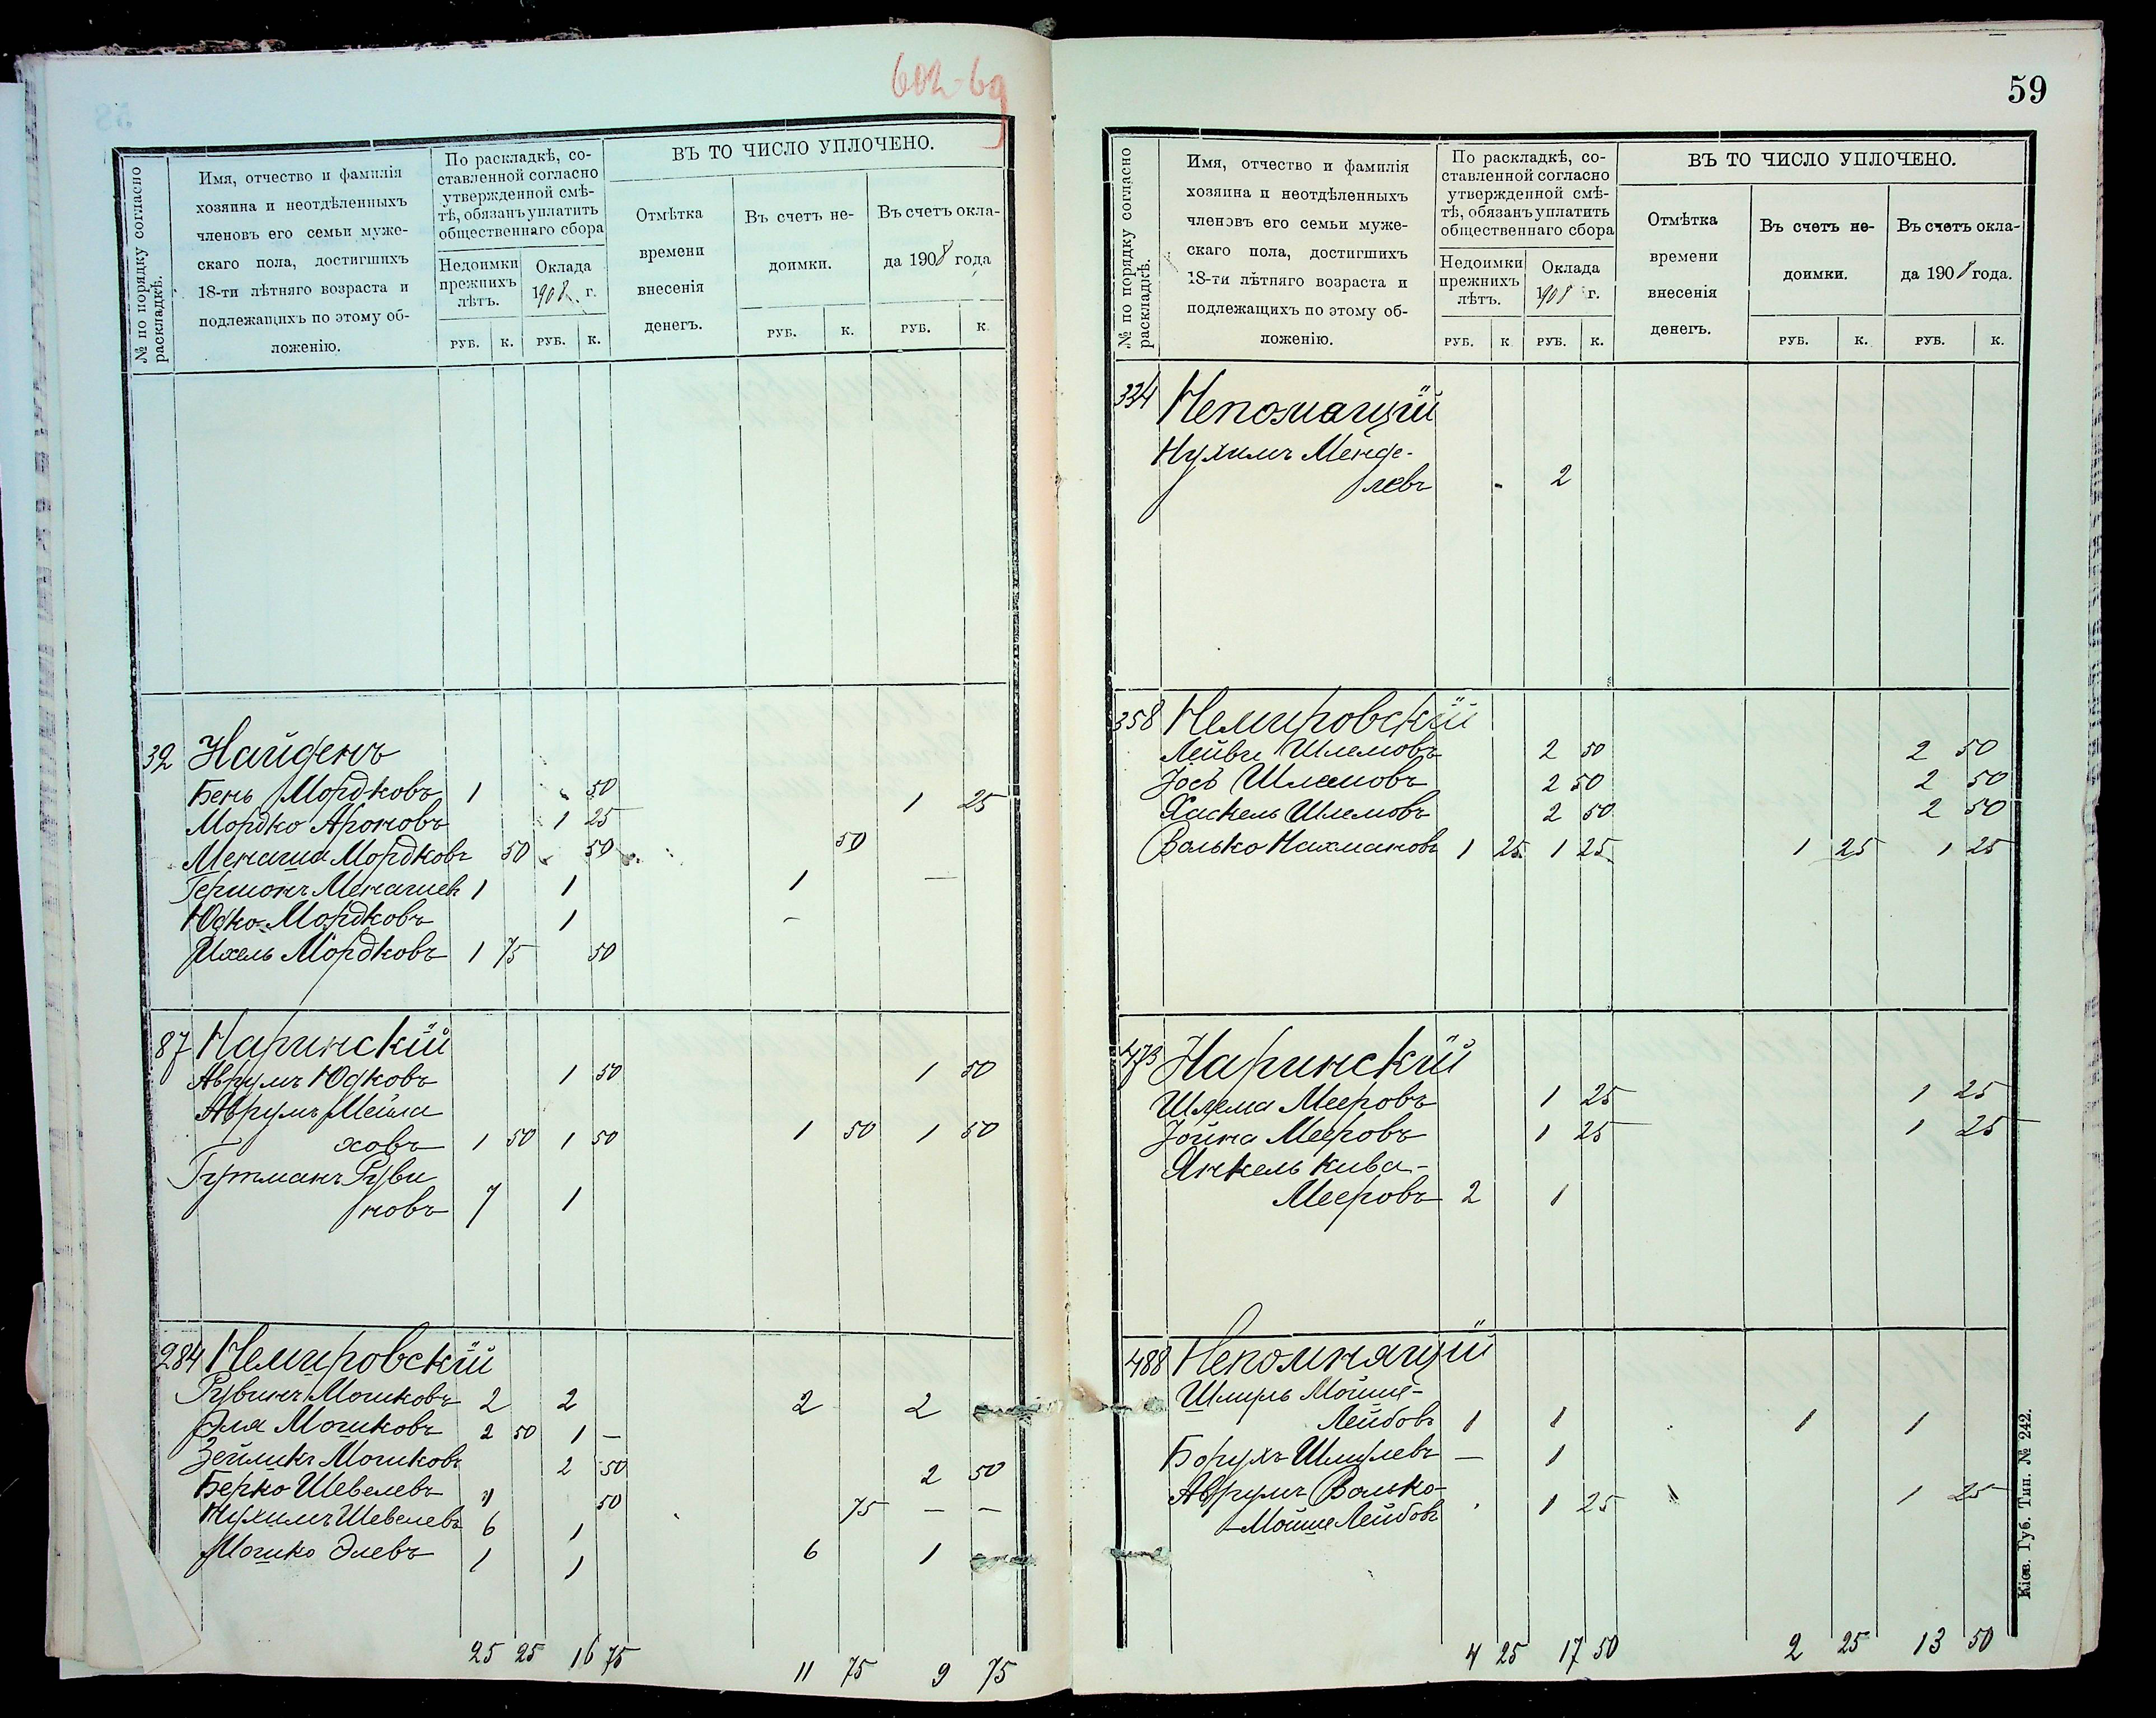 602-69
№ по порядку согласно раскладкѣ.
Имя, отчество и фамилія
хозяина и неотдѣленныхъ
членовъ его семьи муже-
скаго пола, достигшихъ
18-ти лѣтняго возраста и
подлежащихъ по этому об-
ложенію.
По раскладкѣ, со-
ставленной согласно
утвержденной смѣ-
тѣ, обязанъ уплатить
общественнаго сбора
Недоимки
прежнихъ
лѣтъ.
Оклада
1908 г.
РУБ. К. РУБ. К.
ВЪ ТО ЧИСЛО УПЛОЧЕНО.
Отмѣтка
времени
внесенія
денегъ.
Въ счетъ не-
доимки.
Въ счетъ окла-
да 1908 года
РУБ. К. РУБ. К.
32 Найденъ
Бень Мордковъ 1 50
Мордко Ароновъ 1 25 1 25
Менаша Мордковъ 50 50 50
Гершонъ Менашев 1 1 1 —
Юдко Мордковъ 1 -
Ихель Мордковъ 1 75 50
87 Наринскій
Аврумъ Юдковъ 1 50 1 50
Аврумъ Мейла
ховъ 1 50 1 50 1 50 1 50
Гутманъ Руви
новъ 7 1
284 Немировскій
Рувинъ Мошковъ 2 2 2 2
Эля Мошковъ 2 50 1 —
Зейликъ Мошковъ 2 50 2 50
Берко Шевелевъ 50 75 — —
Нухимъ Шевелевъ 6 1 6 1
Мошко Элевъ 1 1
25 25 16 75 11 75 9 75
59
№ по порядку согласно раскладкѣ.
Имя, отчество и фамилія
хозяина и неотдѣленныхъ
членовъ его семьи муже-
скаго пола, достигшихъ
18-ти лѣтняго возраста и
подлежащихъ по этому об-
ложенію.
По раскладкѣ, со-
ставленной согласно
утвержденной смѣ-
тѣ, обязанъ уплатить
общественнаго сбора
Недоимки
прежнихъ
лѣтъ.
Оклада
1908 г.
РУБ. К РУБ. К.
ВЪ ТО ЧИСЛО УПЛОЧЕНО.
Отмѣтка
времени
внесенія
денегъ.
Въ счетъ не-
доимки.
Въ счетъ окла-
да 1908 года.
РУБ. К. РУБ. К.
334 Непомащій
Нухимъ Менде-
левъ - 2
358 Немировскій
Лейви Шлемовъ 2 50 2 50
Іосъ Шлемовъ 2 50 2 50
Хаскель Шлемовъ 2 50 2 50
Волько Нахмановъ 1 25 1 25 1 25 1 25
473 Наринскій
Шлема Мееровъ 1 25 1 25
Іойна Мееровъ 1 25 1 25
Янкель Кива-
Мееровъ 2 1
488 Непомнящій
Шмуль Мойше-
Лейбовъ 1 1 1 1
Борухъ Шмулевъ — 1
Аврумъ Волько-
-Мойше Лейбовъ 1 25 1 25
4 25 17 50 2 25 13 50
Кіев. Губ. Тип. № 242.